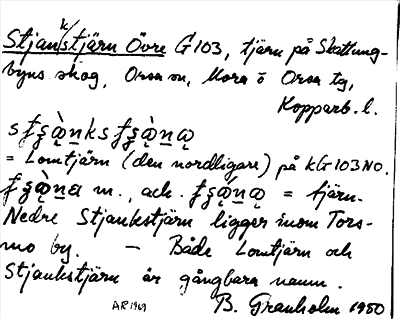 Stjaukstjärn Övre G 103, tjärn på Skattung-
byns skog, Orsa sn, Mora o Orsa tg,
Kopparb. l.
= Lomtjärn (den nordligare) på kG103NO.
m., ack. = tjärn.
Nedre Stjaukstjärn ligger inom Tors-
mo by. — Både Lomtjärn och
Stjaukstjärn är gångbara namn.
AR 1969 B. Granholm 1950